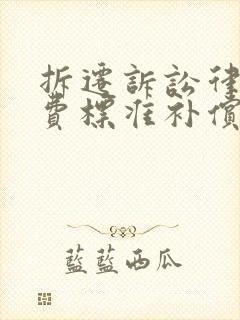 拆遷訴訟律
費標准补償
藍藍西瓜